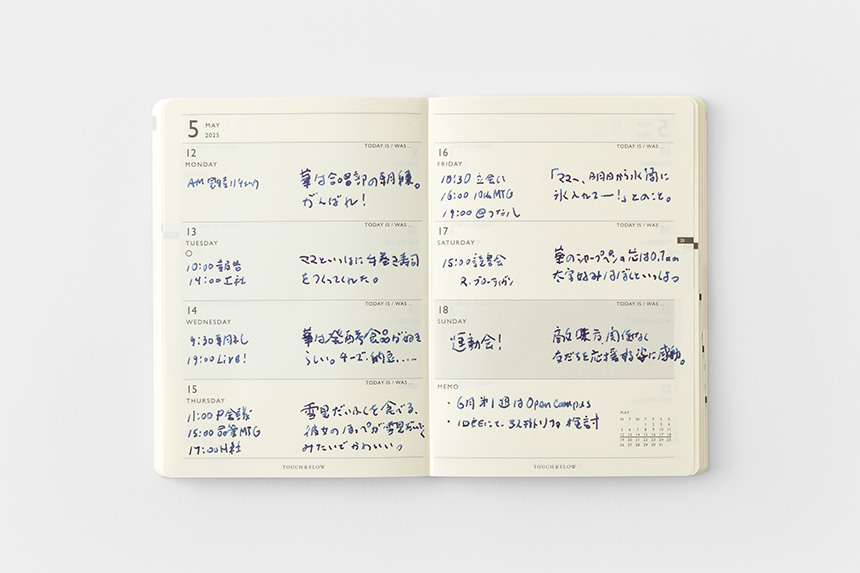 5 MAY
2025
TODAY IS / WAS ...
12
MONDAY
AM
華は合唱部の朝練。
がんばれ!
TODAY IS / WAS ...
13
TUESDAY
10:00 報告
14:00 エ社
ママといっしょに手巻き寿司
をつくってくれた。
TODAY IS / WAS ...
14
WEDNESDAY
9:30
19:00 Live!
華は発酵食品が好き
らしい。チーズ、納豆.....
TODAY IS / WAS ...
15
THURSDAY
11:00 P会議
15:00 品管MTG
17:00 H社
雪見だいふくを食べる、
彼女のほっぺが雪見だいふく
みたいでかわいい。
TOUCH & FLOW
5 MAY
2025
TODAY IS / WAS ...
16
FRIDAY
10:30 立会い
16:00 MTG
19:00 @つなハし
「ママー、明日から水筒に
氷入れてー!」とのこと。
TODAY IS / WAS ...
17
SATURDAY
15:00 読書会
R.ブローティガン
華のシャープペンの芯は0.7mm
太字好みはぼくといっしょ
TODAY IS / WAS ...
18
SUNDAY
運動会!
敵味方関係なく
友だちを応援する姿に感動。
MEMO
・6月第1週はOpen Campus
・IDEEにて、3人掛けソファ検討
MAY
M T W T F S S
1 2 3 4
5 6 7 8 9 10 11
12 13 14 15 16 17 18
19 20 21 22 23 24 25
26 27 28 29 30 31
TOUCH & FLOW
20